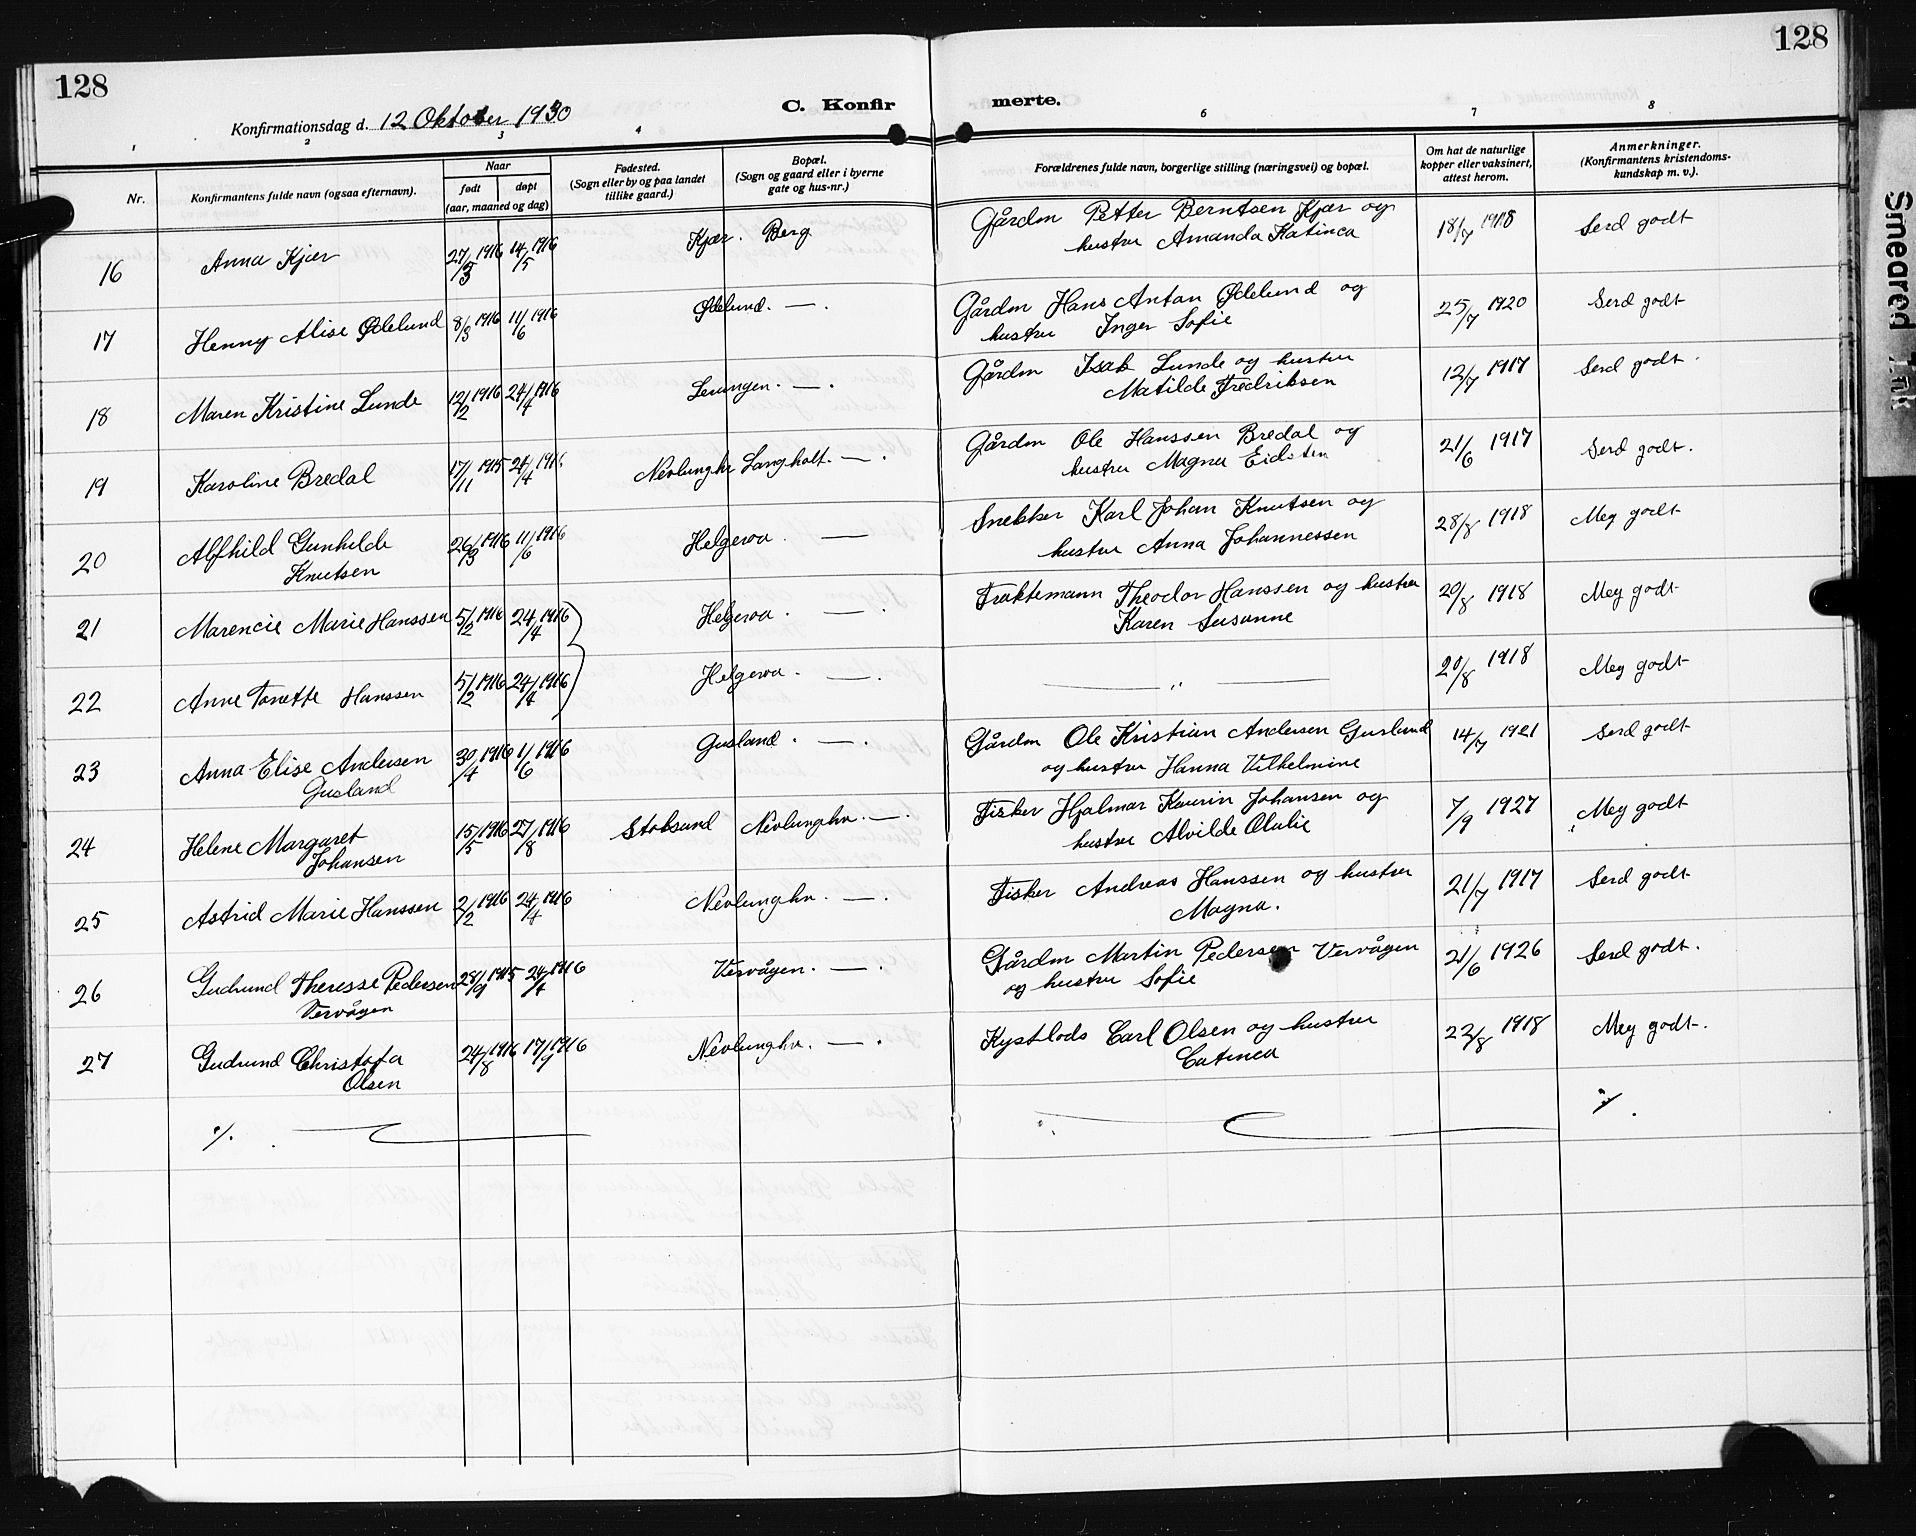 128
128
Konfirmationsdag d. 12 Oktober 1930
C. Konfir
merte.
1 2 3 4 6 7 8
Nr.
Konfirmantens fulde navn (ogsaa efternavn).
Naar
født døpt
(aar, maaned og dag)
Fødested.
(Sogn eller by og paa landet
tillike gaard.)
Bopæl.
(Sogn og gaard eller i byerne
gate og hus-nr.)
Forældrenes fulde navn, borgerlige stilling (næringsvei) og bopæl.
Om hat de naturlige
kopper eller vaksinert,
attest herom.
Anmerkninger.
(Konfirmantens kristendoms-
kundskap m. v.).
16 Anna Kjær 27/3 1916 14/5 1916 Kjær. Berg Gårdm Petter Berntsen Kjær og 18/7 1918 Serd godt
hustru Amanda Katinca
17 Henny Alise Ødelund 8/3 1916 11/6 1916 Ødelund. — . Gårdm Hans Antan Ødelund og 25/7 1920 Serd godt
hustru Inger Sofie
18 Maren Kristine Lunde 12/2 1916 24/4 1916 Leungen. — . Gårdm Isak Lunde og hustru 12/7 1917 Serd godt.
Matilde Fredriksen
19 Karoline Bredal 17/11 1915 24/4 1916. Nevlunghv Langholt. — . Gårdm Ole Hanssen Bredal og 21/6 1917 Serd godt.
hustru Magna Eidsten
20 Alfhild Gunhilde 26/3 1916 11/6 1916 Helgeroa. — Snekker Karl Johan Knutsen og 28/8 1918 Meg godt
Knutsen hustru Anna Johannessen
21 Marencie Marie Hanssen 5/2 1916 24/4 1916 Helgeroa. — . Fraktemann Theodor Hanssen og hustru 20/8 1918 Meg godt
Karen Susanne
22 Anne Tonette Hanssen 5/2 1916 24/4 1916 Helgeroa. — . — " — 20/8 1918 Meg godt
23 Anna Elise Andersen 30/4 1916 1/6 1916 Gusland. — . Gårdm Ole Kristian Andersen Gusland 14/7 1921 Serd godt
Gusland og hustru Hanna Vilhelmine
24 Helene Margaret 15/5 1916 27/8 1916 Stoksund Nevlunghv. — . Fisker Hjalmar Kaurin Johansen og 7/9 1927 Meg godt
Johansen hustru Alvilde Olulie
25 Astrid Marie Hanssen 2/2 1916 24/4 1916 Nevlunghv. — . Fisker Andreas Hanssen og hustru 21/7 1917 Serd godt
Magna.
26 Gudrund Theresse Pedersen 28/9 1915 24/4 1916 Vervågen. — . Gårdm Martin Pedersen Vervågen 21/6 1926 Serd godt.
Vervågen og hustru Sofie
27 Gudrund Christofa 24/8 1916 17/9 1916 Nevlunghv. — . Kystlods Carl Olsen og hustru 22/8 1918 Meg godt.
Olsen Catinca
Smeared